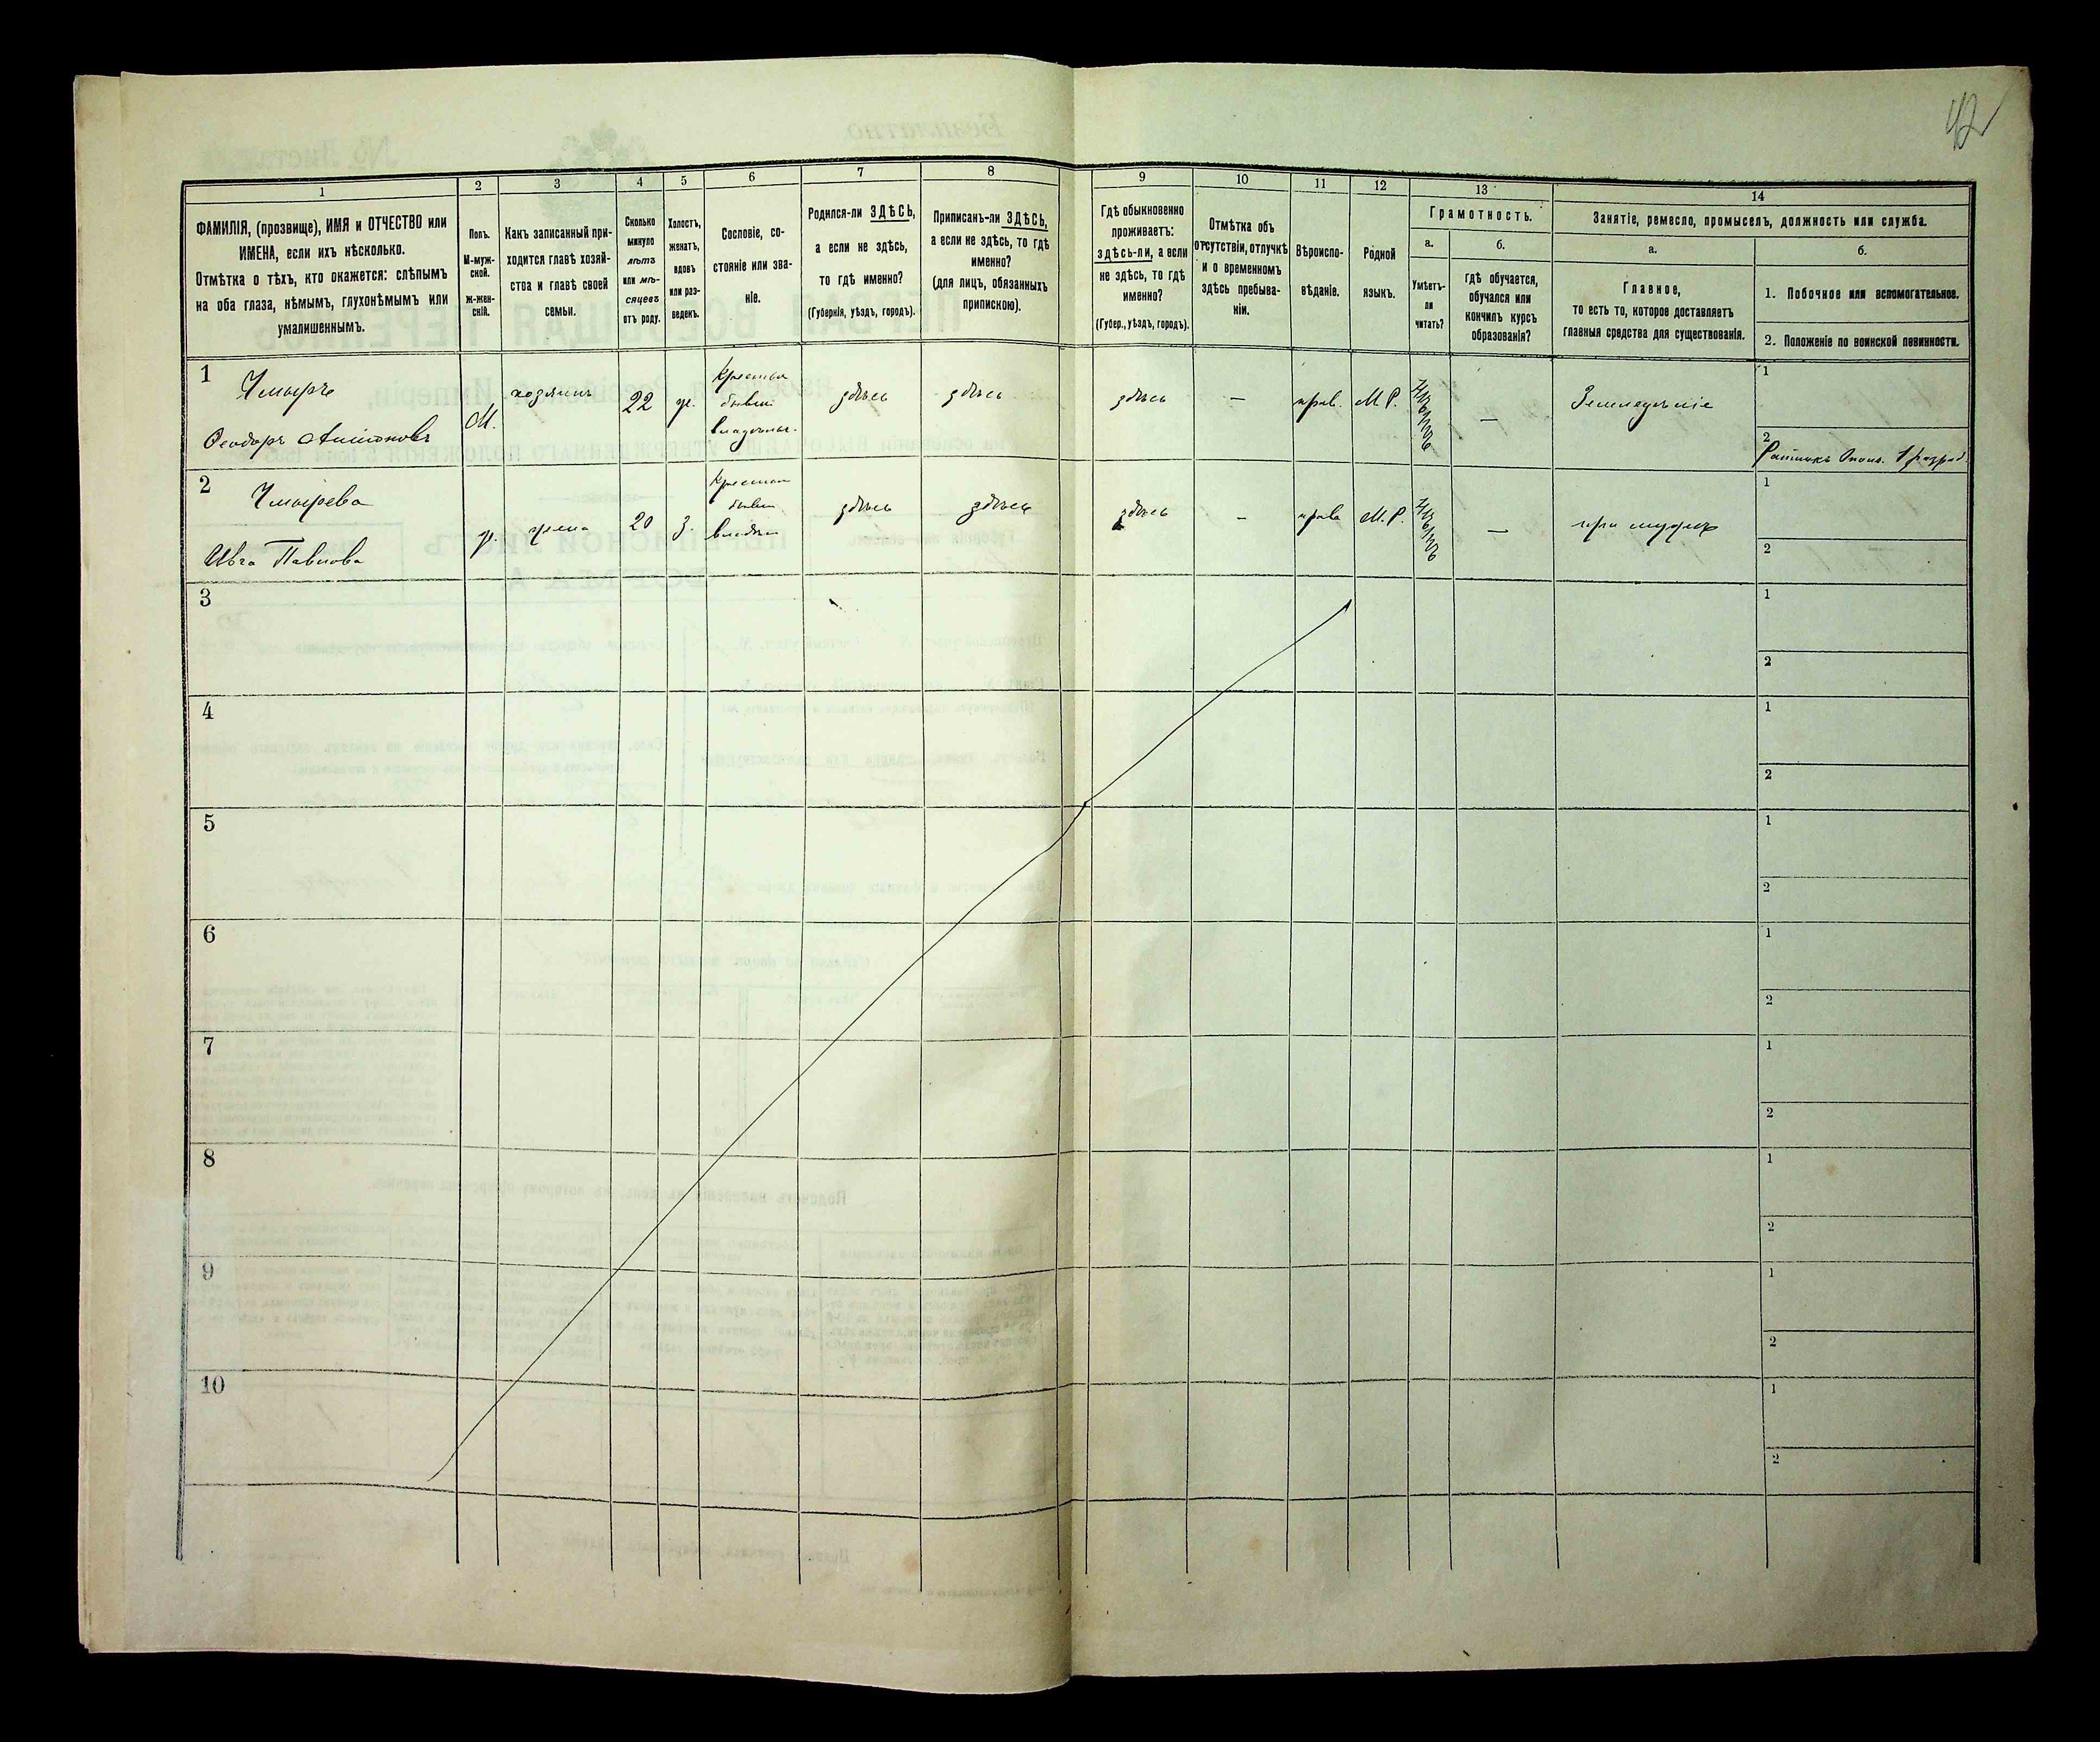 42
1
2
3
4
5
6
7
8
9
10
11
12
13
14
ФАМИЛІЯ, (прозвище), ИМЯ и ОТЧЕСТВО или
ИМЕНА, если ихъ нѣсколько.
Отмѣтка о тѣхъ, кто окажется: слѣпымъ
на оба глаза, нѣмымъ, глухонѣмымъ или
умалишеннымъ.
Полъ.
М-муж-
ской.
ж-жен-
скій.
Какъ записанный при-
ходится главѣ хозяй-
ства и главѣ своей
семьи.
Сколько
минуло
лѣтъ
или мѣ-
сяцевъ
отъ роду.
Холостъ,
женатъ,
вдовъ
или раз-
веденъ.
Сословіе, со-
стояніе или зва-
ніе.
Родился-ли ЗДѢСЬ,
а если не здѣсь,
то гдѣ именно?
(Губернія, уѣздъ, городъ).
Приписанъ-ли ЗДѢСЬ,
а если не здѣсь, то гдѣ
именно?
(для лицъ, обязанныхъ
припискою).
Гдѣ обыкновенно
проживаетъ:
здѣсь-ли, а если
не здѣсь, то гдѣ
именно?
(Губер., уѣздъ, городъ).
Отмѣтка объ
отсутствіи, отлучкѣ
и о временномъ
здѣсь пребыва-
ніи.
Вѣроиспо-
вѣданіе.
Родной
языкъ.
Грамотность.
а.
Умѣетъ-
ли
читать?
б.
гдѣ обучается,
обучался или
кончилъ курсъ
образованія?
Занятіе, ремесло, промыселъ, должность или служба.
а.
Главное,
то есть то, которое доставляетъ
главныя средства для существованія.
б.
1. Побочное или вспомогательное.
2. Положеніе по воинской повинности.
1
Чмырь
Ѳеодоръ Антоновъ
М.
хозяинъ
22
ж.
Крестьян
бывш
владѣльч.
здѣсь
здѣсь
здѣсь
—
прав.
М.Р.
—
Земледѣліе
1
2
Ратникъ Ополч. 1 разряд.
2
Чмырева
Ивга Павлова
ж.
жена
20
з.
Крестьян
бывш
владѣл
здѣсь
здѣсь
здѣсь
—
прав
М.Р.
—
при мужѣ
1
2
3
1
2
4
1
2
5
1
2
6
1
2
7
1
2
8
1
2
9
1
2
10
1
2